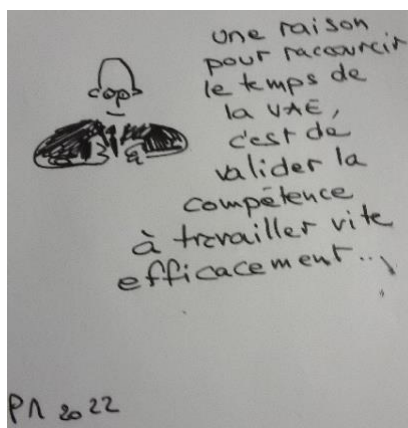 une raison
pour raccourcir
le temps de
la VAE,
c'est de
valider la
compétence
à travailler vite
efficacement...
PN 2022